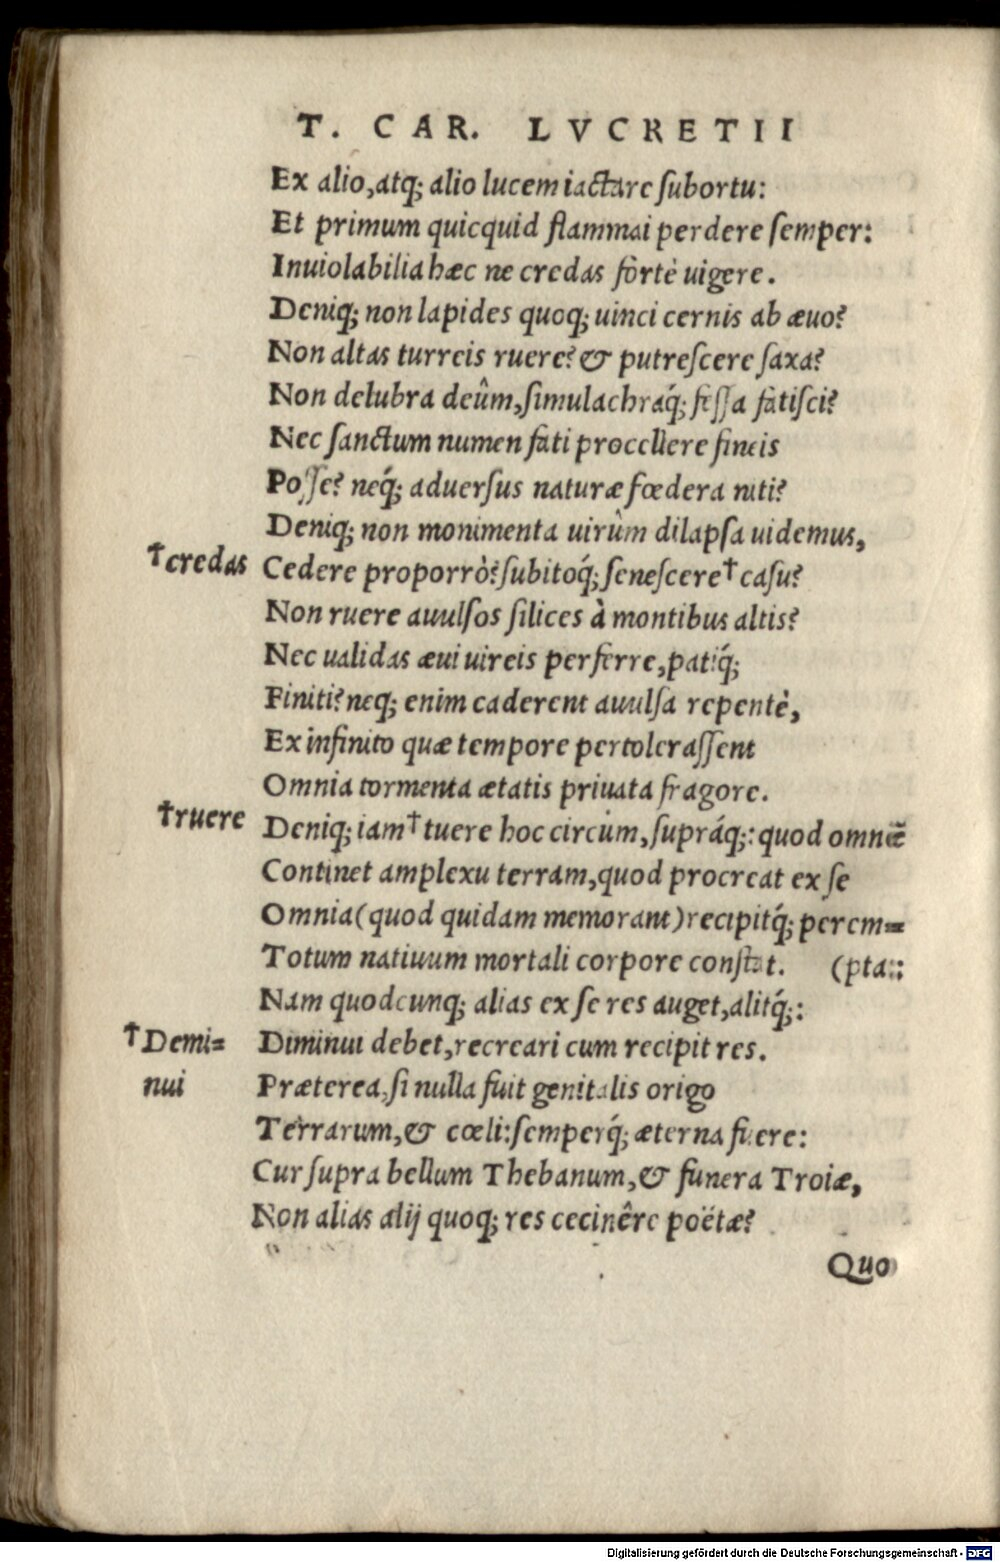 T. CAR. LVCRETII
Ex alio, atq; alio lucem iactare ſubortu:
Et primum quicquid flammai perdere ſemper:
Inuiolabilia hæc ne credas fortè uigere.
Deniq; non lapides quoq; uinci cernis ab æuo?
Non altas turreis ruere? & putreſcere ſaxa?
Non delubra deûm, ſimulachraq́; feſſa fatiſci?
Nec ſanctum numen fati procellere fineis
Poſſe? neq́; aduerſus naturæ fœdera niti?
Deniq; non monimenta uirûm dilapſa uidemus,
†credas Cedere proporrò? ſubitoq́; ſeneſcere† caſu?
Non ruere auulſos ſilices à montibus altis?
Nec ualidas æui uireis perferre, patiq́;
Finiti? neq; enim caderent auulſa repentè,
Ex infinito quæ tempore pertoleraſſent
Omnia tormenta ætatis priuata fragore.
†ruere Deniq; iam† tuere hoc circùm, ſupráq;: quod omnẽ
Continet amplexu terram, quod procreat ex ſe
Omnia (quod quidam memorant) recipitq́; perem=
Totum natiuum mortali corpore conſtat. (pta::
Nam quodcunq; alias ex ſe res auget, alitq́;:
†Demi= Diminui debet, recreari cum recipit res.
nui Præterea, ſi nulla fuit genitalis origo
Terrarum, & cœli: ſemperq́; æterna fuere:
Cur ſupra bellum Thebanum, & funera Troiæ,
Non alias alij quoq; res cecinêre poëtæ?
Quo
Digitalisierung gefördert durch die Deutsche Forschungsgemeinschaft - DFG